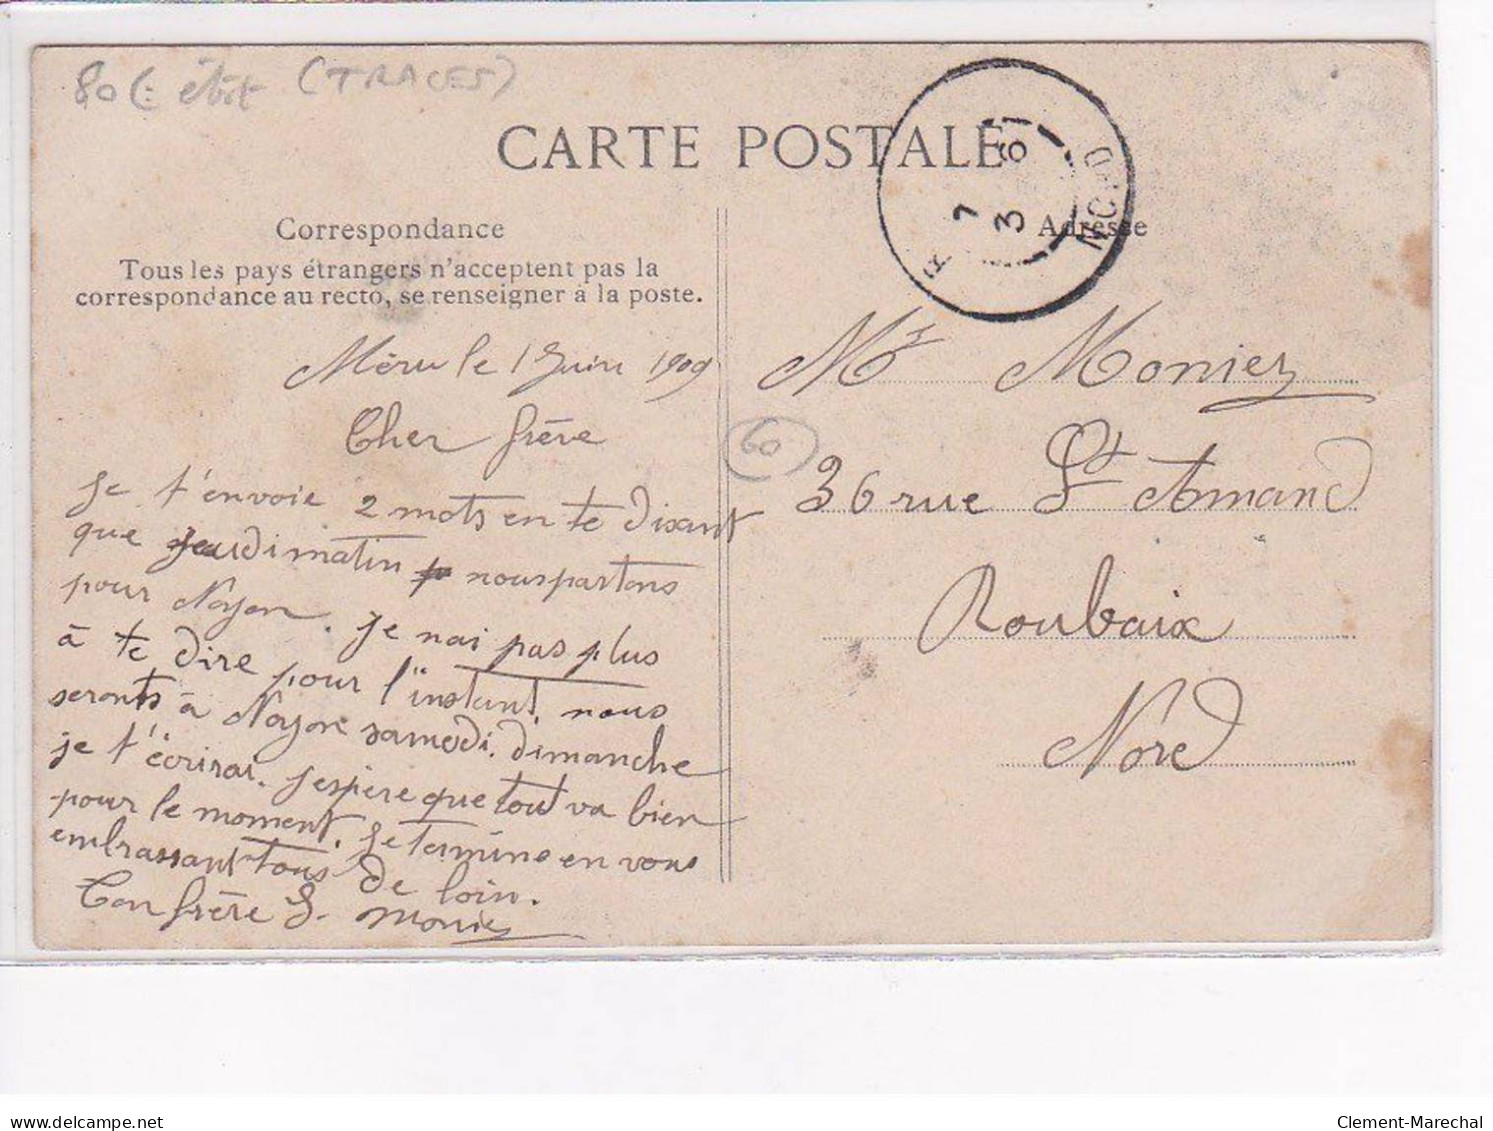 80 € état (TRACES)
CARTE POSTALE
Correspondance
Tous les pays étrangers n'acceptent pas la
correspondance au recto, se renseigner à la poste.
Méru le 1 Juin 1909
Cher frère
Je t'envoie 2 mots en te disant
que jeudi matin nous partons
pour Noyon. Je nai pas plus
à te dire pour l'instant, nous
seronts à Noyon samedi. dimanche
je t'écrirai. J'espère que tout va bien
pour le moment. Je termine en vous
embrassant tous de loin.
Ton frère
Moniez
Adresse
Mr Moniez
60
36 rue St Amand
Roubaix
Nord
delcampe.net
Clement-Marechal